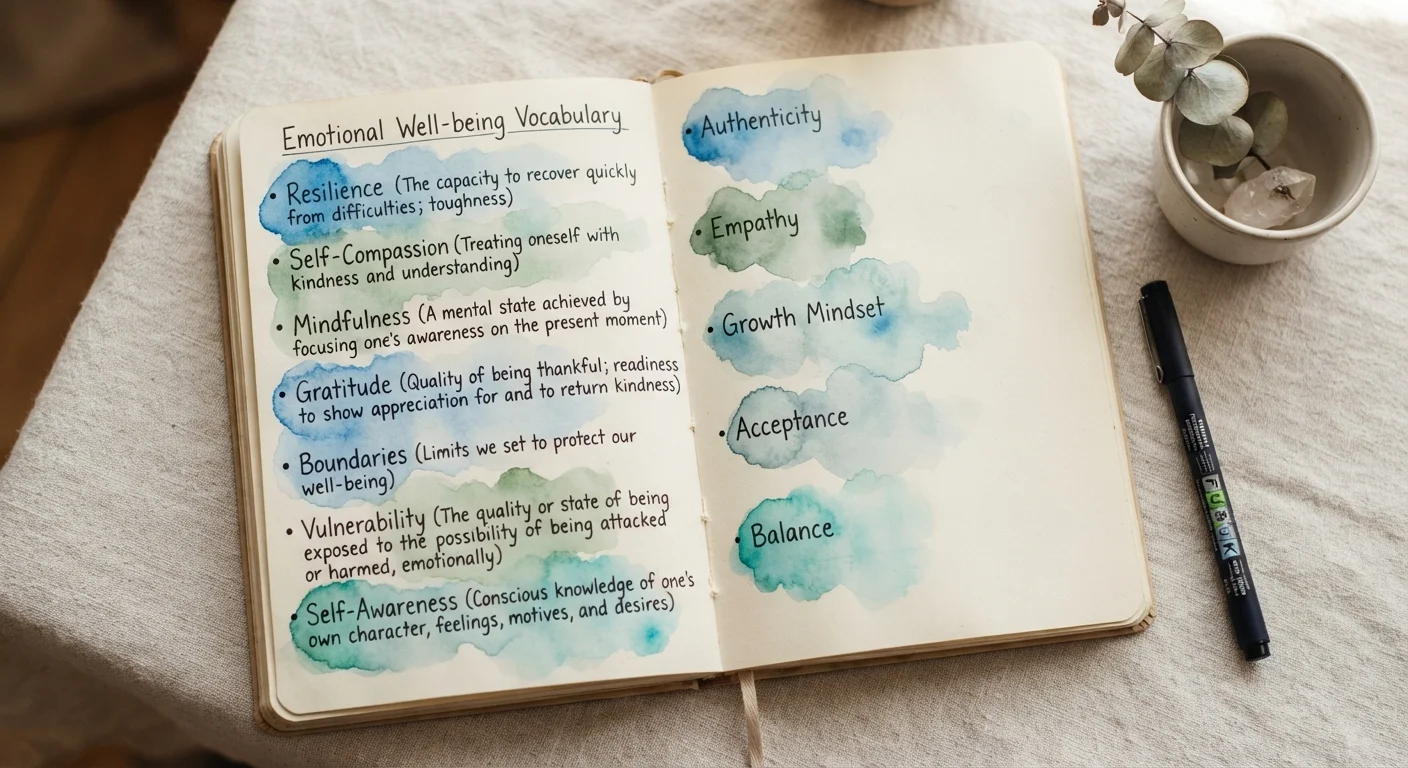 Emotional Well-being Vocabulary
• Resilience (The capacity to recover quickly
from difficulties; toughness)
• Self-Compassion (Treating oneself with
kindness and understanding)
• Mindfulness (A mental state achieved by
focusing one's awareness on the present moment)
• Gratitude (Quality of being thankful; readiness
to show appreciation for and to return kindness)
• Boundaries (Limits we set to protect our
well-being)
• Vulnerability (The quality or state of being
exposed to the possibility of being attacked
or harmed, emotionally)
• Self-Awareness (Conscious knowledge of one's
own character, feelings, motives, and desires)
• Authenticity
• Empathy
• Growth Mindset
• Acceptance
• Balance